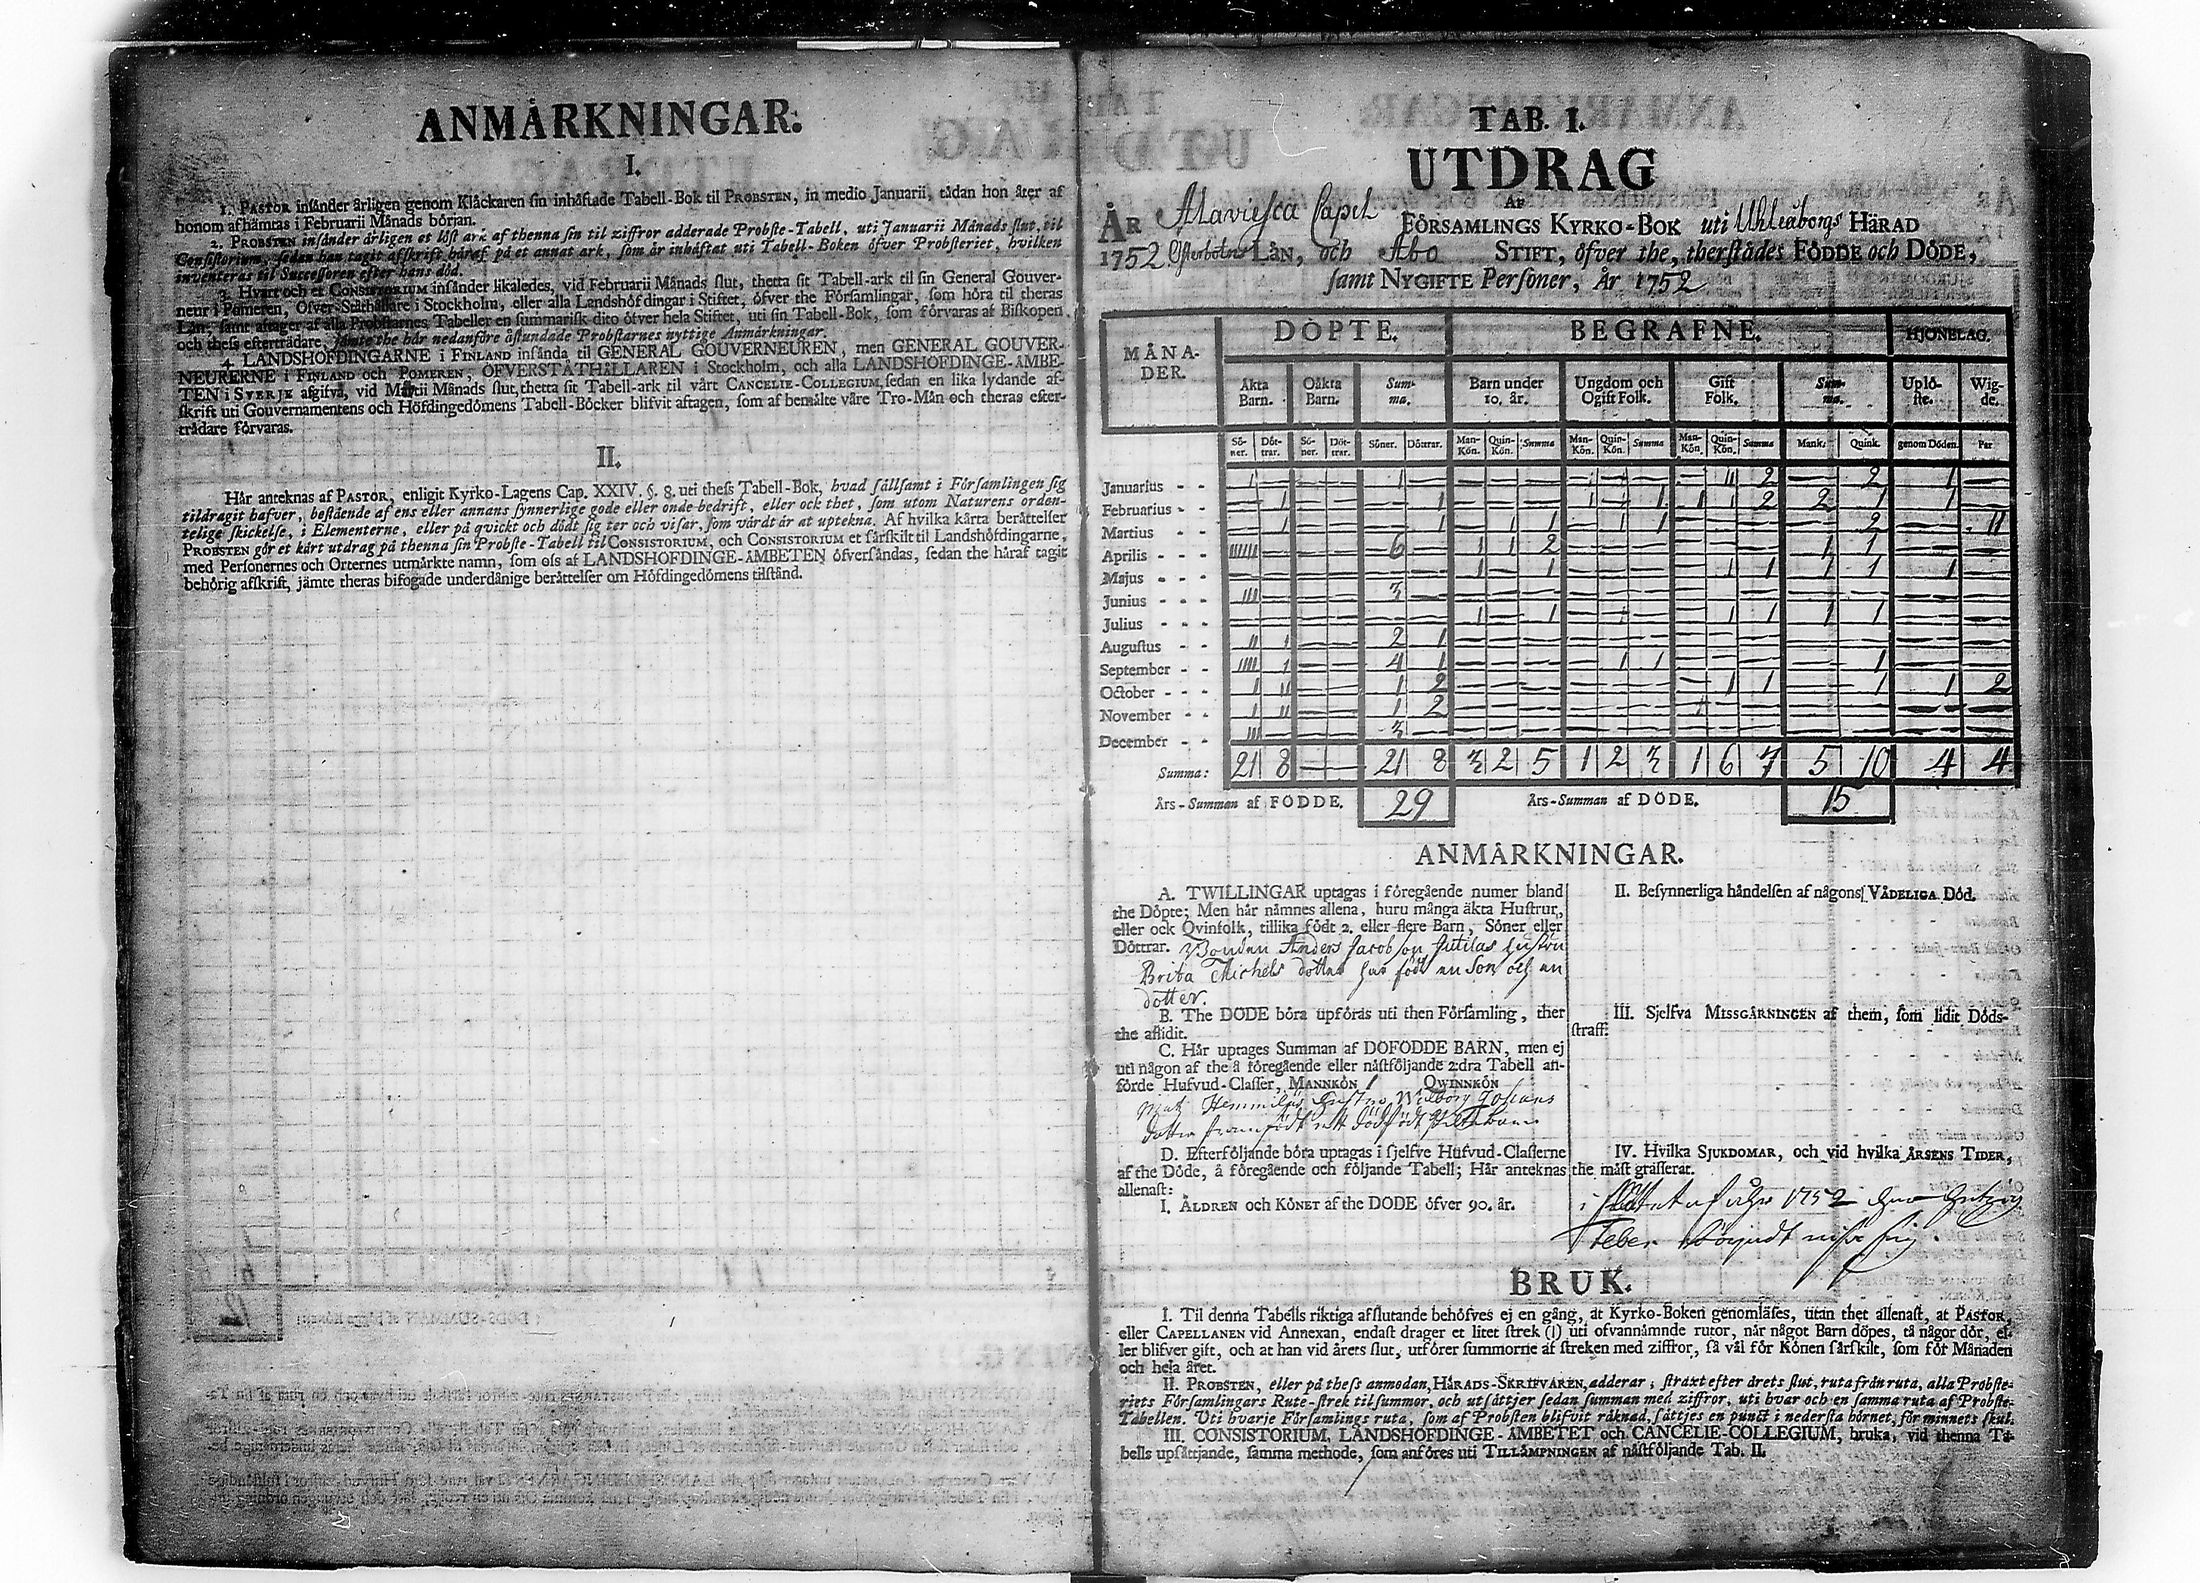 ANMÅRKNINGAR.
I.
1. PASTOR insånder årligen genom Klåckaren sin inhåftade Tabell-Bok til PROBSTEN, in medio Januarii, tådan hon åter af
honom afhåmtas i Februarii Månads början.
2. PROBSTEN insånder årligen et löst ark af thenna sin til ziffror adderade Probste-Tabell, uti Januarii Månads slut, til
Consistorium, sedan han tagit afskrift håraf på et annat ark, som år inhåftat uti Tabell-Boken öfver Probsteriet, hvilken
inventeras til Successoren efter hans död.
3. Hvart och et CONSISTORIUM insånder likaledes, vid Februarii Månads slut, thetta sit Tabell-ark til sin General Gouver-
neur i Pomeren, Öfver-Ståthållare i Stockholm, eller alla Landshöfdingar i Stiftet, öfver the Församlingar, som höra til theras
Lån, samt aftager af alla Probstarnes Tabeller en summarisk dito öfver hela Stiftet, uti sin Tabell-Bok, som förvaras af Biskopen
och thess efterträdare, jämte the hår nedanföre åstundade Probstarnes nyttige Anmårkningar.
4. LANDSHÖFDINGARNE i FINLAND insånda til GENERAL GOUVERNEUREN, men GENERAL GOUVER-
NEURERNE i FINLAND och POMEREN, ÖFVERSTÅTHÅLLAREN i Stockholm, och alla LANDSHÖFDINGE-ÅMBE-
TEN i SVERJE afgifva, vid Martii Månads slut, thetta sit Tabell-ark til vårt CANCELIE-COLLEGIUM, sedan en lika lydande af-
skrift uti Gouvernamentens och Höfdingedömens Tabell-Böcker blifvit aftagen, som af bemålte våre Tro-Mån och theras efter-
trådare förvaras.
II.
Hår anteknas af PASTOR, enligit Kyrko-Lagens Cap. XXIV. §. 8. uti thess Tabell-Bok, hvad sållsamt i Församlingen sig
tildragit hafver, bestående af ens eller annans synnerlige gode eller onde bedrift, eller ock thet, som utom Naturens orden-
telige skickelse, i Elementerne, eller på qvickt och dödt sig ter och visar, som vårdt år at uptekna. Af hvilka kårta beråttelser
PROBSTEN gör et kårt utdrag på thenna sin Probste-Tabell til CONSISTORIUM, och CONSISTORIUM et sårskilt til Landshöfdingarne,
med Personernes och Orternes utmårkte namn, som oss af LANDSHÖFDINGE-ÅMBETEN öfversåndas, sedan the håraf tagit
behörig afskrift, jämte theras bifogade underdånige beråttelser om Höfdingedömens tilstånd.
TAB. I.
UTDRAG
AF
ÅR Alaviesca Capel FÖRSAMLINGS KYRKO-BOK uti Uhleåborgs HÄRAD
1752. Österbotns LÅN, och Åbo STIFT, öfver the, therstådes FÖDDE och DÖDE,
samt NYGIFTE Personer, År 1752
MÅNA-DER. DÖPTE. BEGRAFNE. HJONELAG.
Åkta Barn. Oåkta Barn. Sum-ma. Barn under 10. år. Ungdom och Ogift Folk. Gift Folk. Sum-ma. Uplö-ste. Wig-de.
Sö-ner. Döt-trar. Sö-ner. Döt-trar. Söner. Döttrar. Man-Kön. Quin-Kön. Summa Man-Kön. Quin-Kön. Summa Man-Kön. Quin-Kön. Summa Mank. Quink. genom Döden. Par
Januarius - - 1 — — — 1 — — — — — — — — 11 2 — 2 1 —
Februarius - - — 1 — — — 1 — — — 1 — 1 1 1 2 2 1 1 —
Martius - - — 1 — — — 1 — 1 1 — 1 1 — — — — 2 — 11
Aprilis - - - 111111 — — — 6 — 1 1 2 — — — — — — 1 1 — —
Majus - - - — — — — — — 1 — 1 — — — — 1 1 1 1 1 —
Junius - - - 111 — — — 3 — — — — — — — — — — — — — —
Julius - - - — — — — — — 1 — 1 — — — — 1 1 1 1 — —
Augustus - - 11 1 — — 2 1 — — — — — — — — — — — — —
September - - 1111 1 — — 4 1 — — — — 1 1 — — — — 1 — —
October - - - 1 11 — — 1 2 — — — — — — — 1 1 — 1 1 2
November - - 1 11 — — 1 2 — — — — — — — — — — — — —
December - - 111 — — — 3 — — — — — — — — — — — — — —
Summa: 21 8 — — 21 8 3 2 5 1 2 3 1 6 7 5 10 4 4
Års-Summan af FÖDDE. 29 Års-Summan af DÖDE. 15
ANMÅRKNINGAR.
A. TWILLINGAR uptagas i föregående numer bland
the Döpte; Men hår nåmnes allena, huru många åkta Hustrur,
eller ock Qvinfolk, tillika födt 2. eller flere Barn, Söner eller
Döttrar. Bonden Anders Jacobson hustru
Brita Michels dotter har födt en Son och en
dotter.
B. The DÖDE böra upföras uti then Församling, ther
the aflidit.
C. Hår uptages Summan af DÖFÖDDE BARN, men ej
uti någon af the å föregående eller nåstföljande 2:dra Tabell an-
förde Hufvud-Classer, MANNKÖN 1 QWINNKÖN
Matz hustru Walborg
dotter framfödt ett dödfödt
D. Efterföljande böra uptagas i sjelfve Hufvud-Classerne
af the Döde, å föregående och följande Tabell; Hår anteknas
allenast:
I. ÅLDREN och KÖNET af the DÖDE öfver 90. år.
II. Besynnerliga håndelsen af någons VÅDELIGA Död.
III. Sjelfva MISSGÅRNINGEN af them, som lidit Döds-
straff.
IV. Hvilka SJUKDOMAR, och vid hvilka ÅRSENS TIDER,
the måst grasserat.
i slutet af åhr 1752 har hetzig
feber begynt wisa sig.
BRUK.
I. Til denna Tabells riktiga afslutande behöfves ej en gång, at Kyrko-Boken genomläses, utan thet allenast, at PASTOR,
eller CAPELLANEN vid Annexan, endast drager et litet strek (|) uti ofvannåmnde rutor, når något Barn döpes, tå någor dör, el-
ler blifver gift, och at han vid årets slut, utförer summorne af streken med ziffror, så vål för Könen sårskilt, som för Månaden
och hela året.
II. PROBSTEN, eller på thess anmodan, HÅRADS-SKRIFVAREN, adderar; straxt efter årets slut, ruta från ruta, alla Probste-
riets Församlingars Rute-strek til summor, och utsåttjer sedan summan med ziffror, uti hvar och en samma ruta af Probste-
Tabellen. Uti hvarje Församlings ruta, som af Probsten blifvit råknad, såttjes en punct i nedersta hörnet, för minnets skul.
III. CONSISTORIUM, LANDSHÖFDINGE-ÅMBETET och CANCELIE-COLLEGIUM, bruka, vid thenna Ta-
bells upsåttjande, samma methode, som anföres uti TILLÅMPNINGEN af nåstföljande Tab. II.